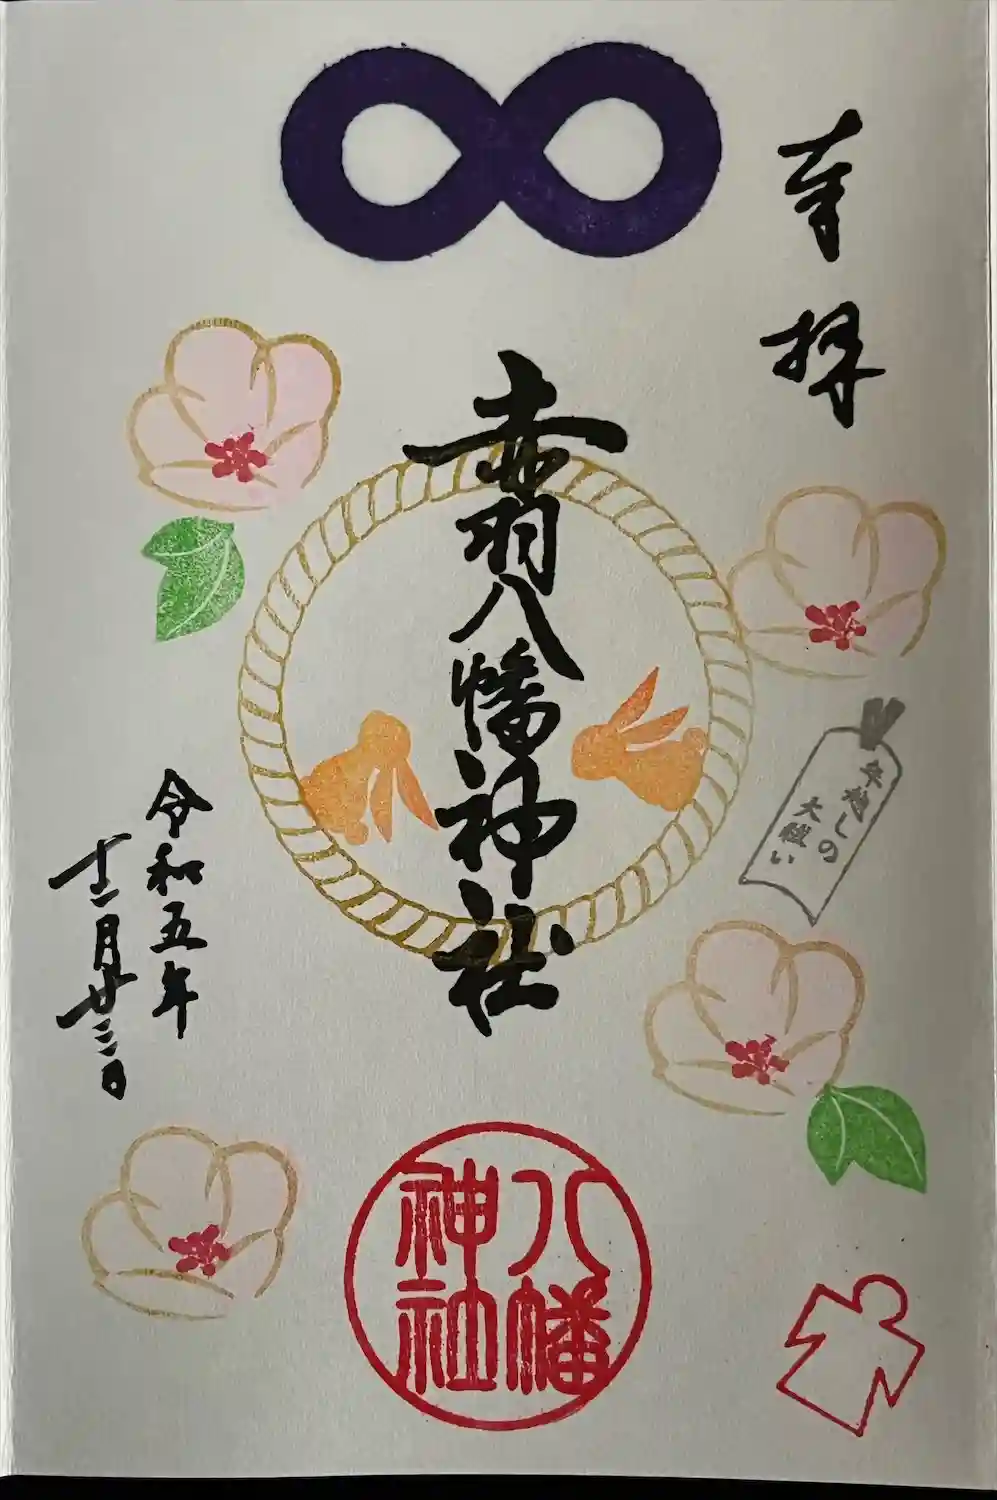 奉拝
赤羽八幡神社
年越しの
大祓い
令和五年
十二月廿三日
八幡
神社